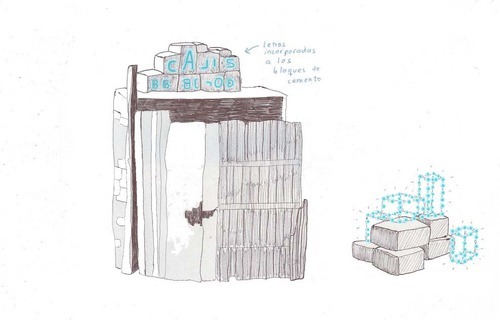 Letras
incorporadas
a los
bloques de
cemento
CALIS